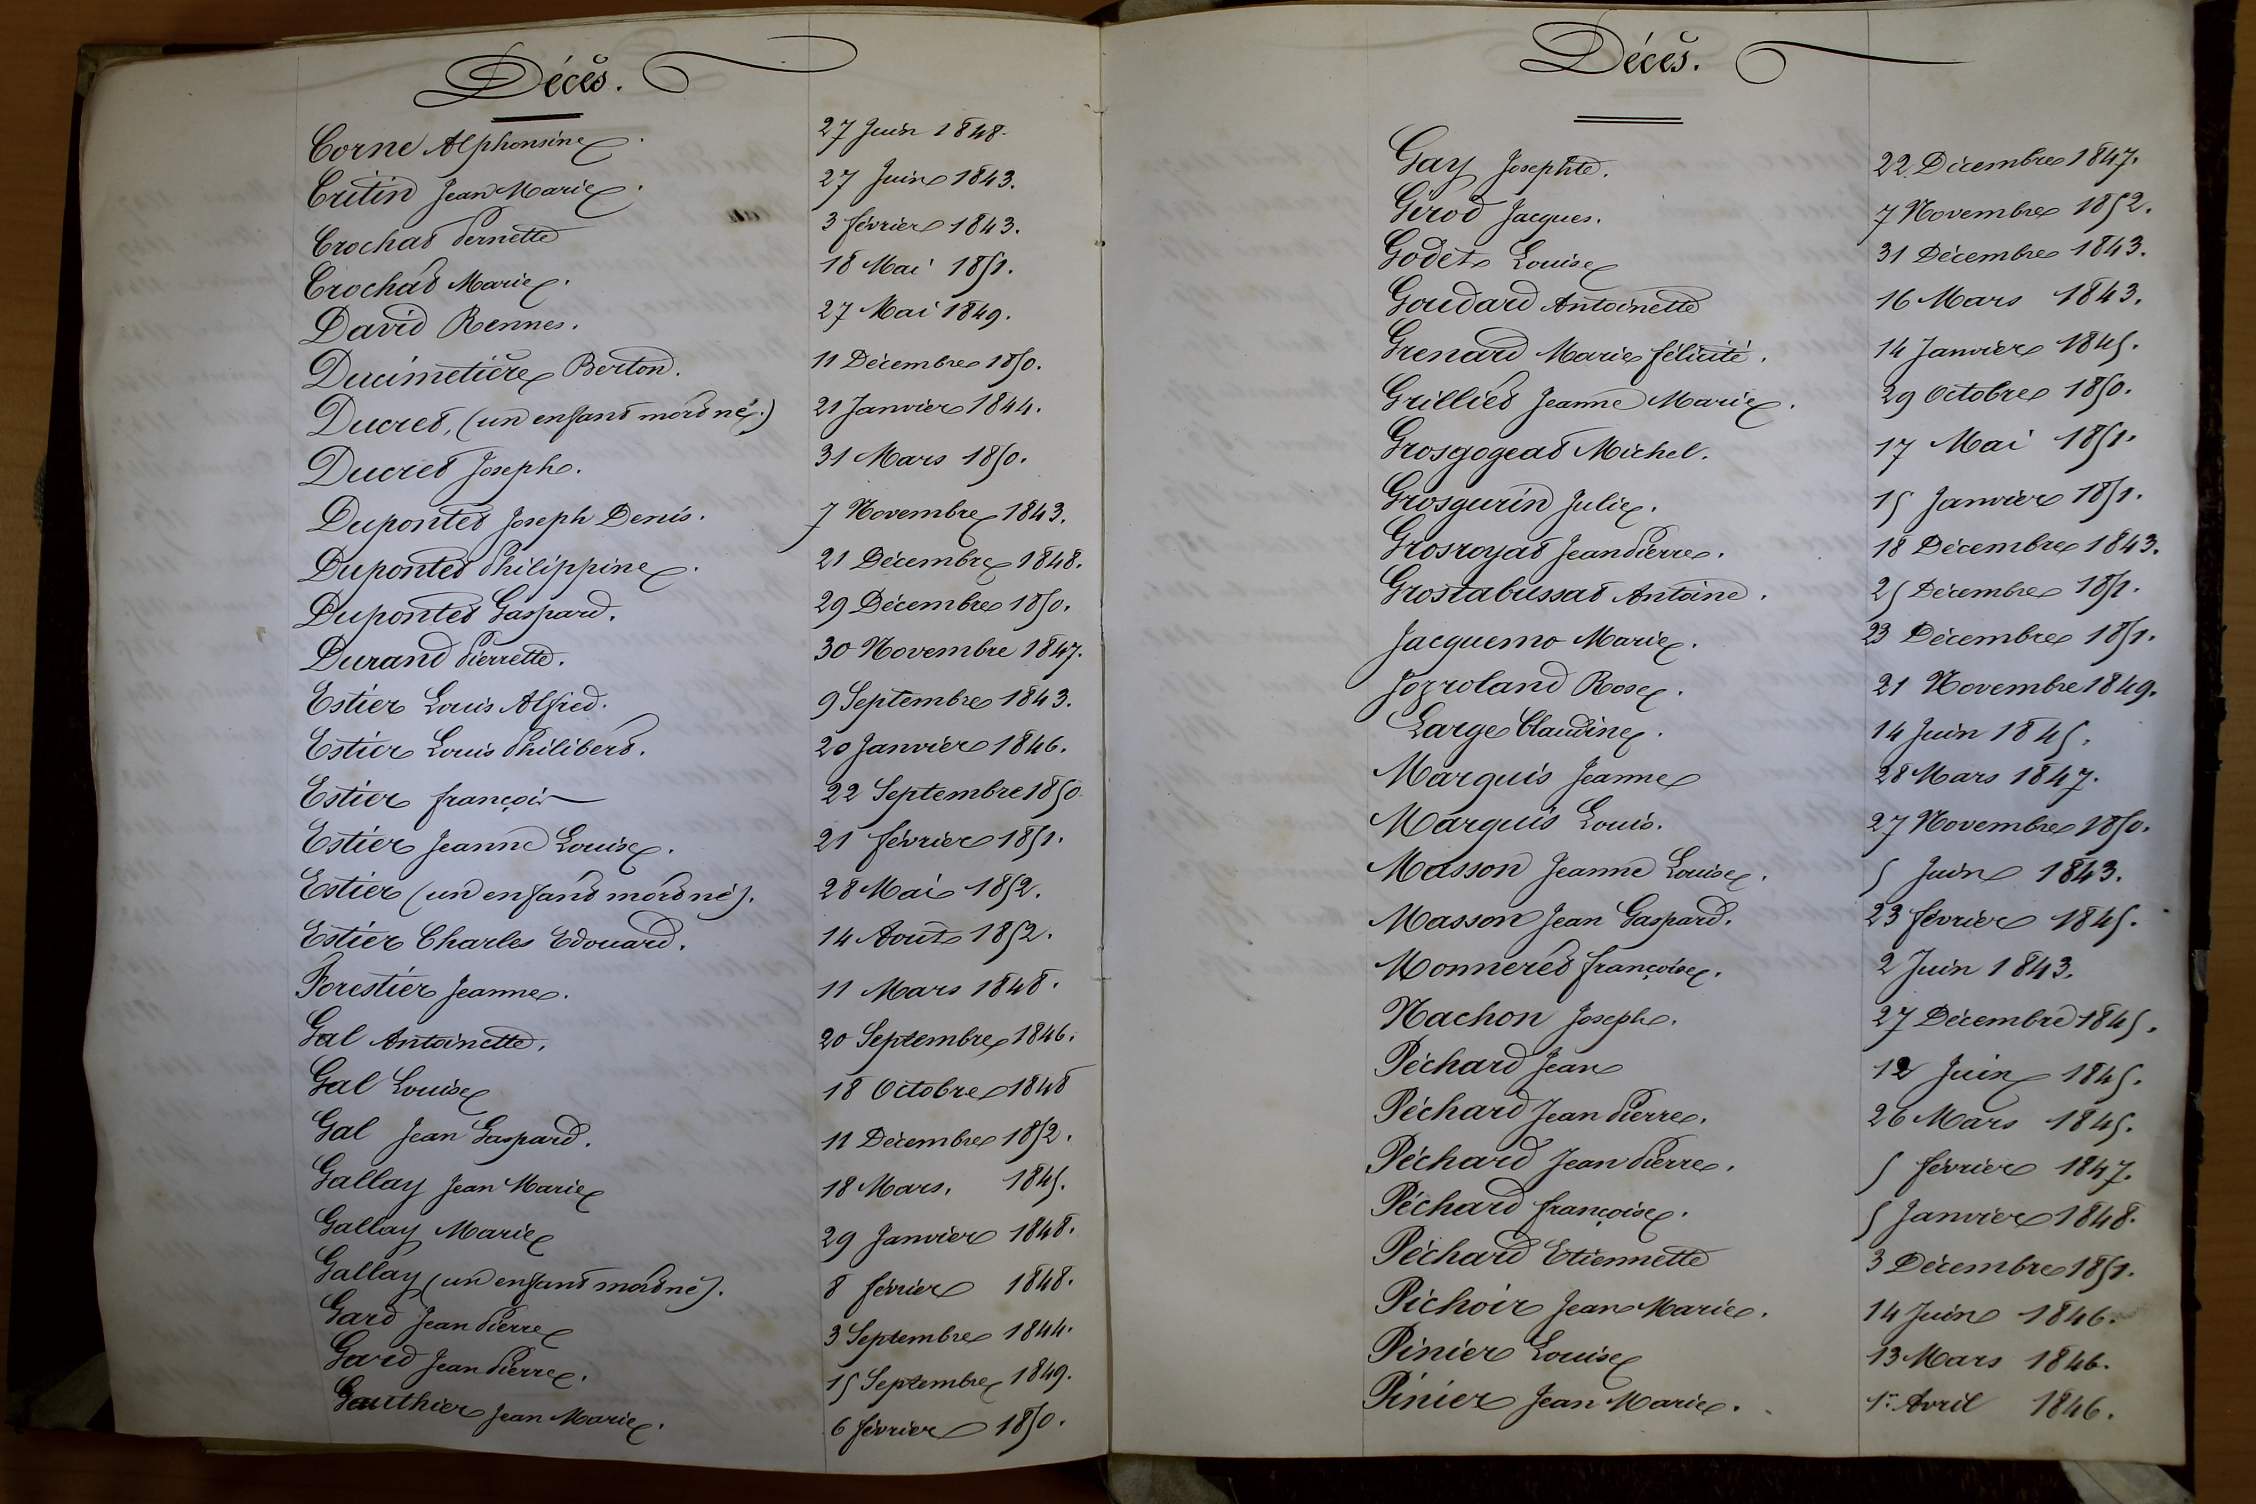 Décès.
Corne Alphonsine. 27 Juin 1848.
Critin Jean Marie. 27 Juin 1843.
Crochat Pernette 3 février 1843.
Crochat Marie. 18 Mai 1851.
David Rennes. 27 Mai 1849.
Ducimetière Berton. 11 Décembre 1850.
Ducret, (un enfant mort né.) 21 Janvier 1844.
Ducret Joseph. 31 Mars 1850.
Dupontet Joseph Denis. 7 Novembre 1843.
Dupontet Philippine. 21 Décembre 1848.
Dupontet Gaspard. 29 Décembre 1850.
Durand Pierrette. 30 Novembre 1847.
Estier Louis Alfred. 9 Septembre 1843.
Estier Louis Philibert. 20 Janvier 1846.
Estier françois 22 Septembre 1850
Estier Jeanne Louise. 21 février 1851.
Estier (un enfant mort né). 28 Mai 1852.
Estier Charles Edouard. 14 Aout 1852.
Forestier Jeanne. 11 Mars 1848.
Gal Antoinette. 20 Septembre 1846.
Gal Louise 18 Octobre 1848
Gal Jean Gaspard. 11 Décembre 1852.
Gallay Jean Marie 18 Mars. 1845.
Gallay Marie 29 Janvier 1848.
Gallay (un enfant mort né). 8 février 1848.
Gard Jean Pierre 3 Septembre 1844.
Gard Jean Pierre. 15 Septembre 1849.
Gauthier Jean Marie. 6 février 1850.
Décès.
Gay Josephte. 22 Décembre 1847.
Girod Jacques. 7 Novembre 1852.
Godet Louise 31 Décembre 1843.
Goudard Antoinette 16 Mars 1843.
Grenard Marie félicité. 14 Janvier 1845.
Grilliet Jeanne Marie. 29 Octobre 1850.
Grosgogeat Michel. 17 Mai 1851.
Grosgurin Julie. 15 Janvier 1851.
Grosroyat Jean Pierre. 18 Décembre 1843.
Grostabussat Antoine. 25 Décembre 1851.
Jacquemo Marie. 23 Décembre 1851.
Jozroland Rose. 21 Novembre 1849.
Large Claudine. 14 Juin 1845.
Marquis Jeanne 28 Mars 1847.
Marquis Louis. 27 Novembre 1850.
Masson Jeanne Louise. 5 Juin 1843.
Masson Jean Gaspard. 23 février 1845.
Monneret françoise. 2 Juin 1843.
Nachon Joseph. 27 Décembre 1845.
Péchard Jean 12 Juin 1845.
Péchard Jean Pierre. 26 Mars 1845.
Péchard Jean Pierre. 5 février 1847.
Péchard françoise. 5 Janvier 1848.
Péchard Etiennette 3 Décembre 1851.
Pichoir Jean Marie. 14 Juin 1846.
Pinier Louise 13 Mars 1846.
Pinier Jean Marie. 1er Avril 1846.